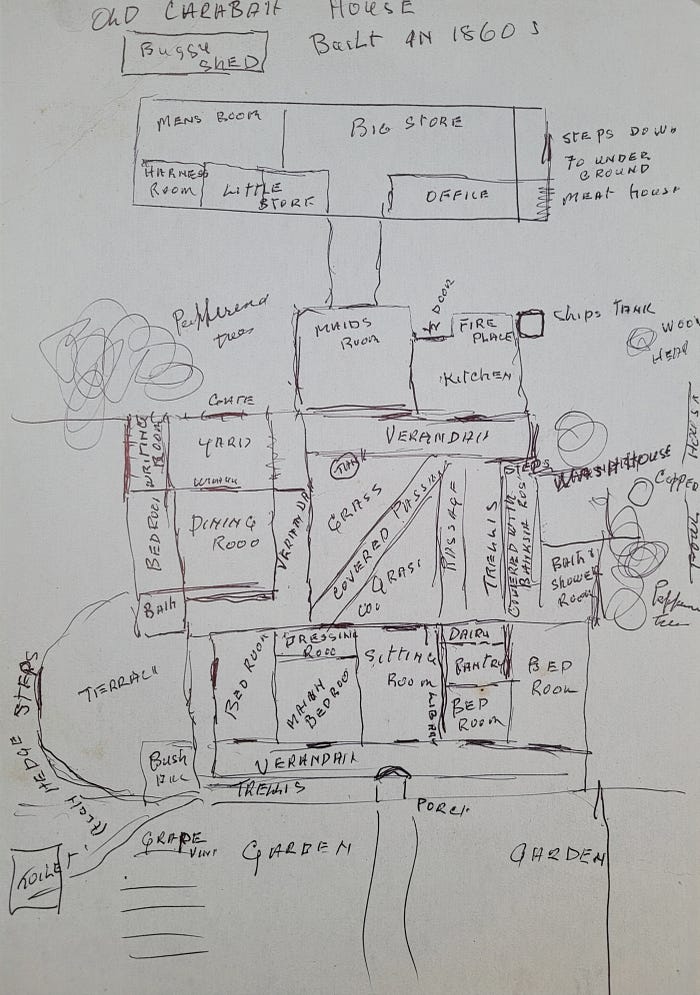 OLD CARABAH HOUSE
BUILT IN 1860s
BUGGY
SHED
MENS ROOM
BIG STORE
STEPS DOWN
TO UNDER
GROUND
MEAT HOUSE
HARNESS
ROOM
LITTLE
STORE
OFFICE
DOOR
MAIDS
ROOM
FIRE
PLACE
SHIPS TANK
WOOD
HEAP
KITCHEN
GATE
YARD
WRITING
ROOM
VERANDAH
TANK
STEPS
WASHHOUSE
COPPER
GRASS
COVERED PASSAGE
PASSAGE
TRELLIS
COVERED WITH
BANKSIA ROSE
BEDROOM
DINING
ROOO
VERANDA
GRASS
BATH &
SHOWER
ROOM
BATH
TERRACE
HEDGE STEPS
BED ROOM
DRESSING
ROOO
MAIN
BEDROO
SITTING
ROOM
LIBRARY
DAIRY
PANTRY
BED
ROOM
BED
ROOM
VERANDAH
TRELLIS
PORCH
BUSH
TOILET
GRAPE
VINE
GARDEN
GARDEN